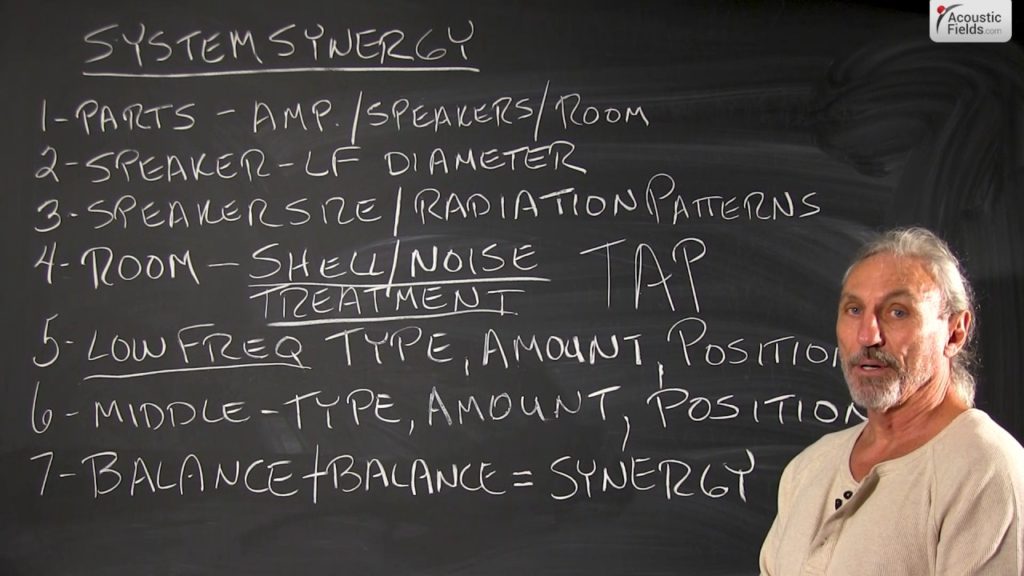 Acoustic
Fields.com
SYSTEM SYNERGY
1-PARTS - AMP./SPEAKERS/ROOM
2-SPEAKER-LF DIAMETER
3-SPEAKER SIZE/RADIATION PATTERNS
4-ROOM - SHELL/NOISE TAP
TREATMENT
5-LOW FREQ TYPE, AMOUNT, POSITION
6-MIDDLE-TYPE, AMOUNT, POSITION
7-BALANCE+BALANCE = SYNERGY